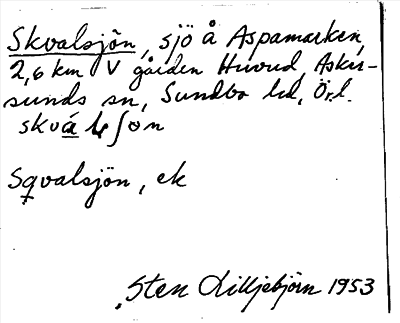 Skvalsjön, sjö å Aspamarken,
2,6 km V gården Huvud, Asker-
sunds sn, Sundbo hd, Örl.
skvá
Sqvalsjön, ek
Sten Lilljebjörn 1953